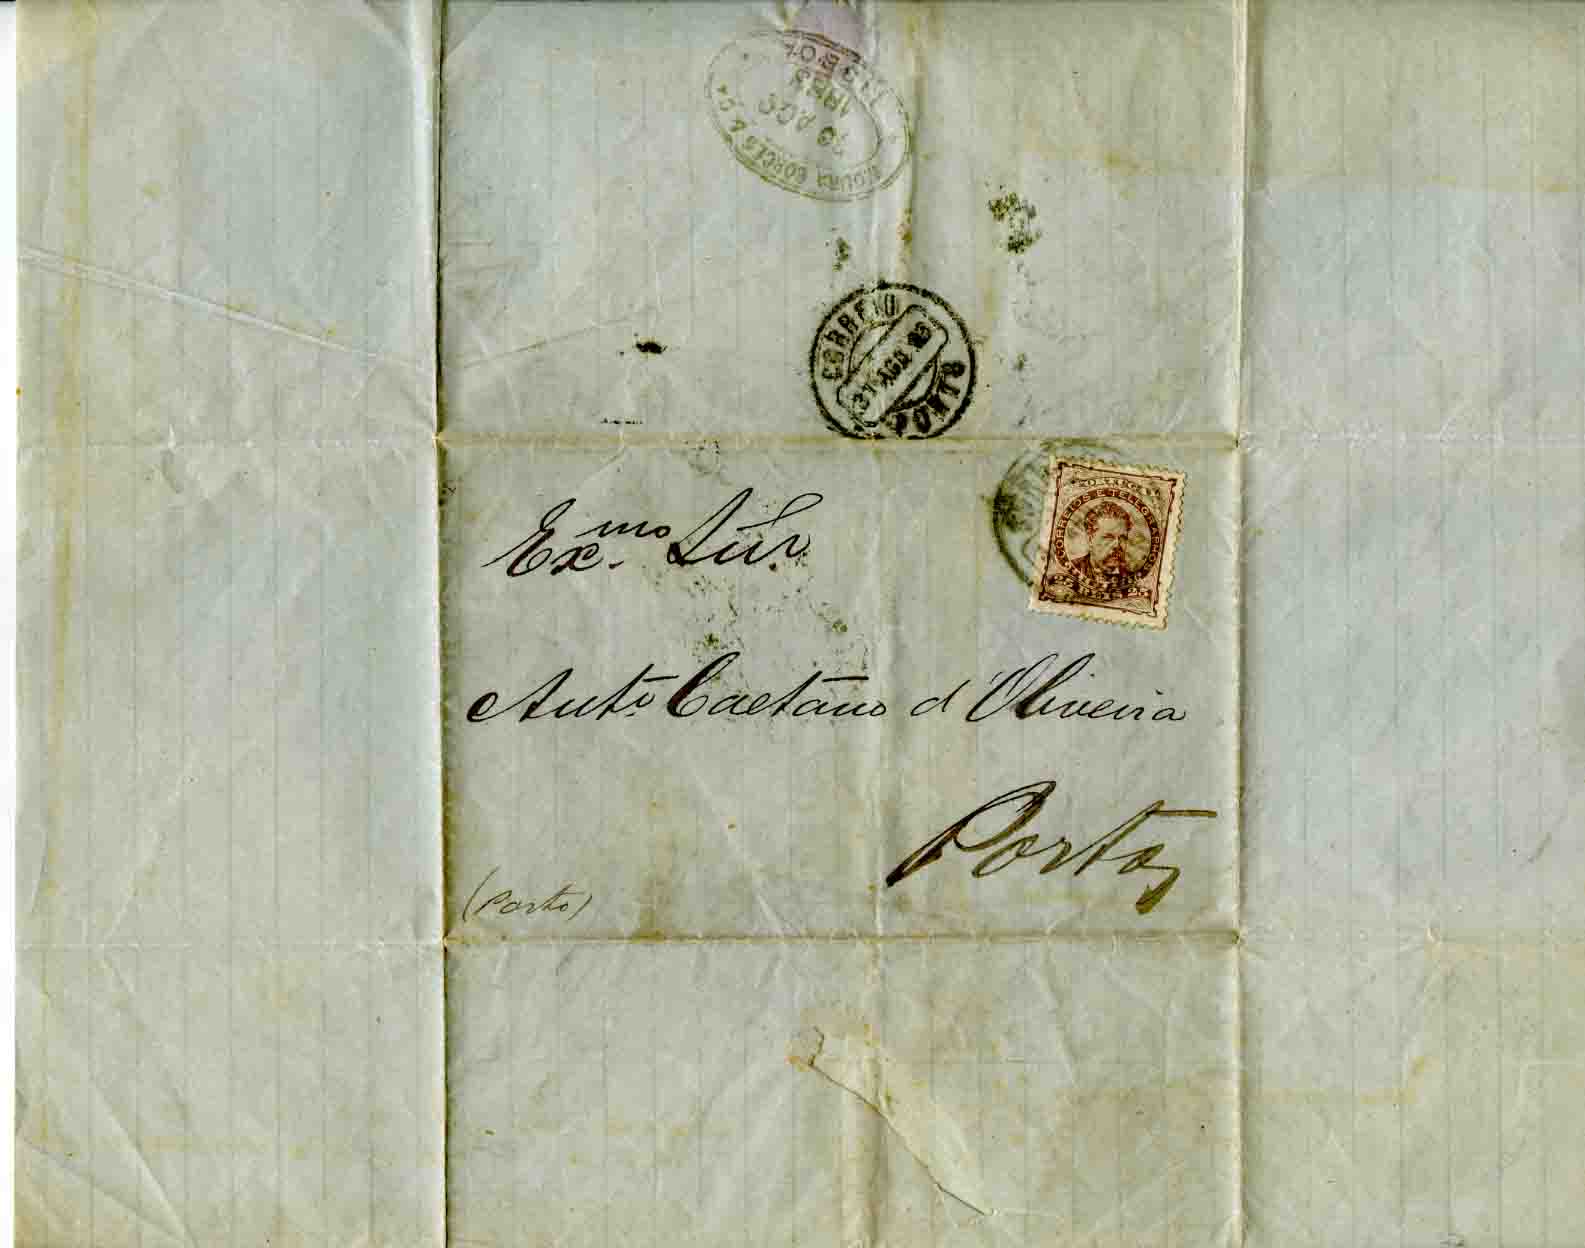 MOURA BORGES & Cª
30 AGO
1883
LISBOA
CORREIO
31 AGO 83
PORTO
PORTUGAL
CORREIOS E TELEGRAPHOS
25 REIS 25
Exmo. Snr.
Antº. Caetano d'Oliveira
Porto
(Porto)